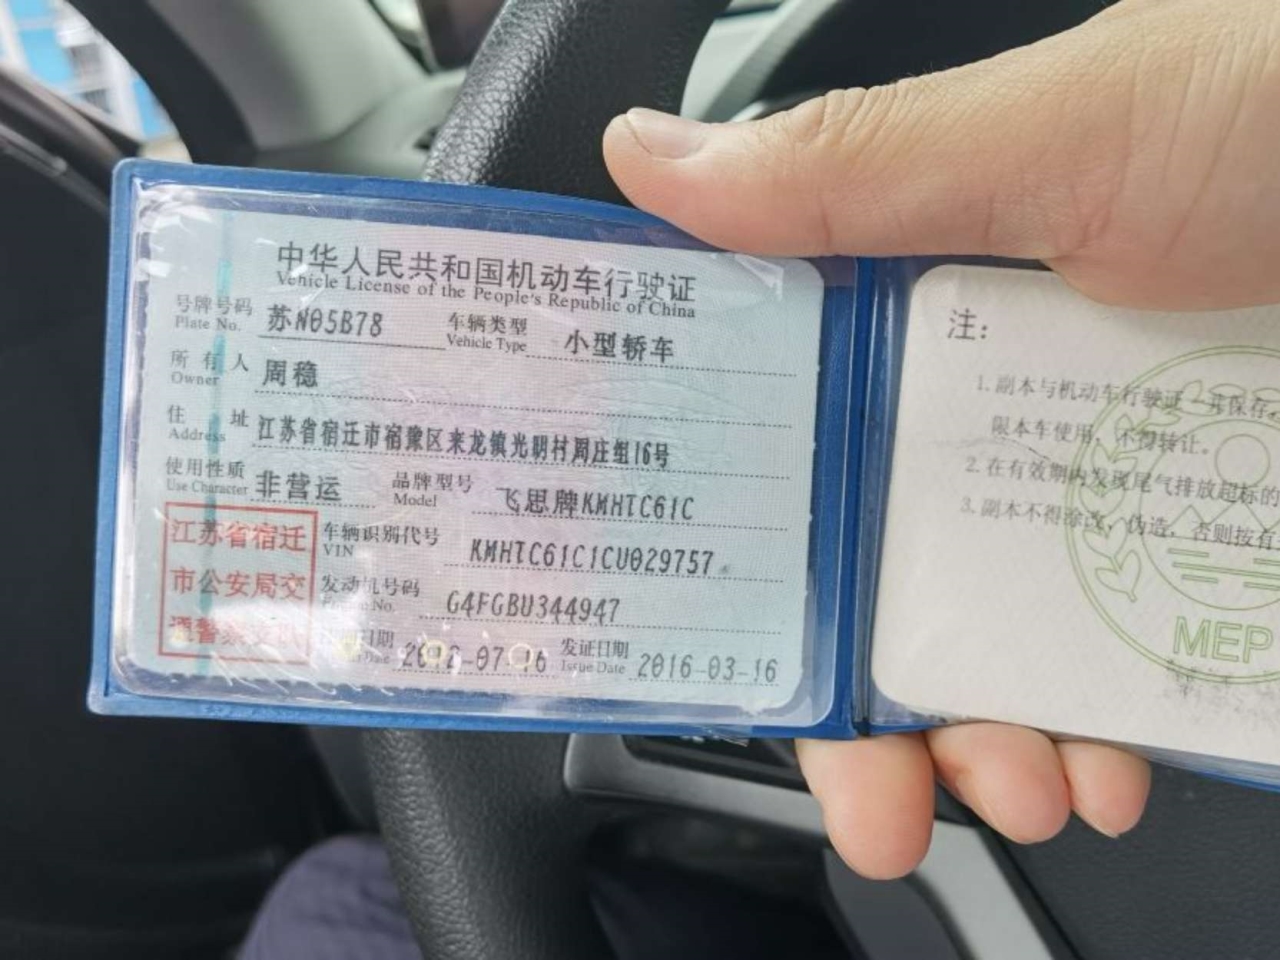 中华人民共和国机动车行驶证
Vehicle License of the People's Republic of China
号牌号码 苏N05B78 车辆类型 小型轿车
Plate No. Vehicle Type
所有人 周稳
Owner
住址 江苏省宿迁市宿豫区来龙镇光明村周庄组16号
Address
使用性质 非营运 品牌型号 飞思牌KMHTC61C
Use Character Model
江苏省宿迁
市公安局交
通警察支队
车辆识别代号 KMHTC61C1CU029757
VIN
发动机号码 G4FGBU344947
Engine No.
日期 2012-07-16 发证日期 2016-03-16
Date Issue Date
注:
1. 副本与机动车行驶证一并保存,
限本车使用，不得转让。
2. 在有效期内发现尾气排放超标的
3. 副本不得涂改，伪造，否则按有
MEP